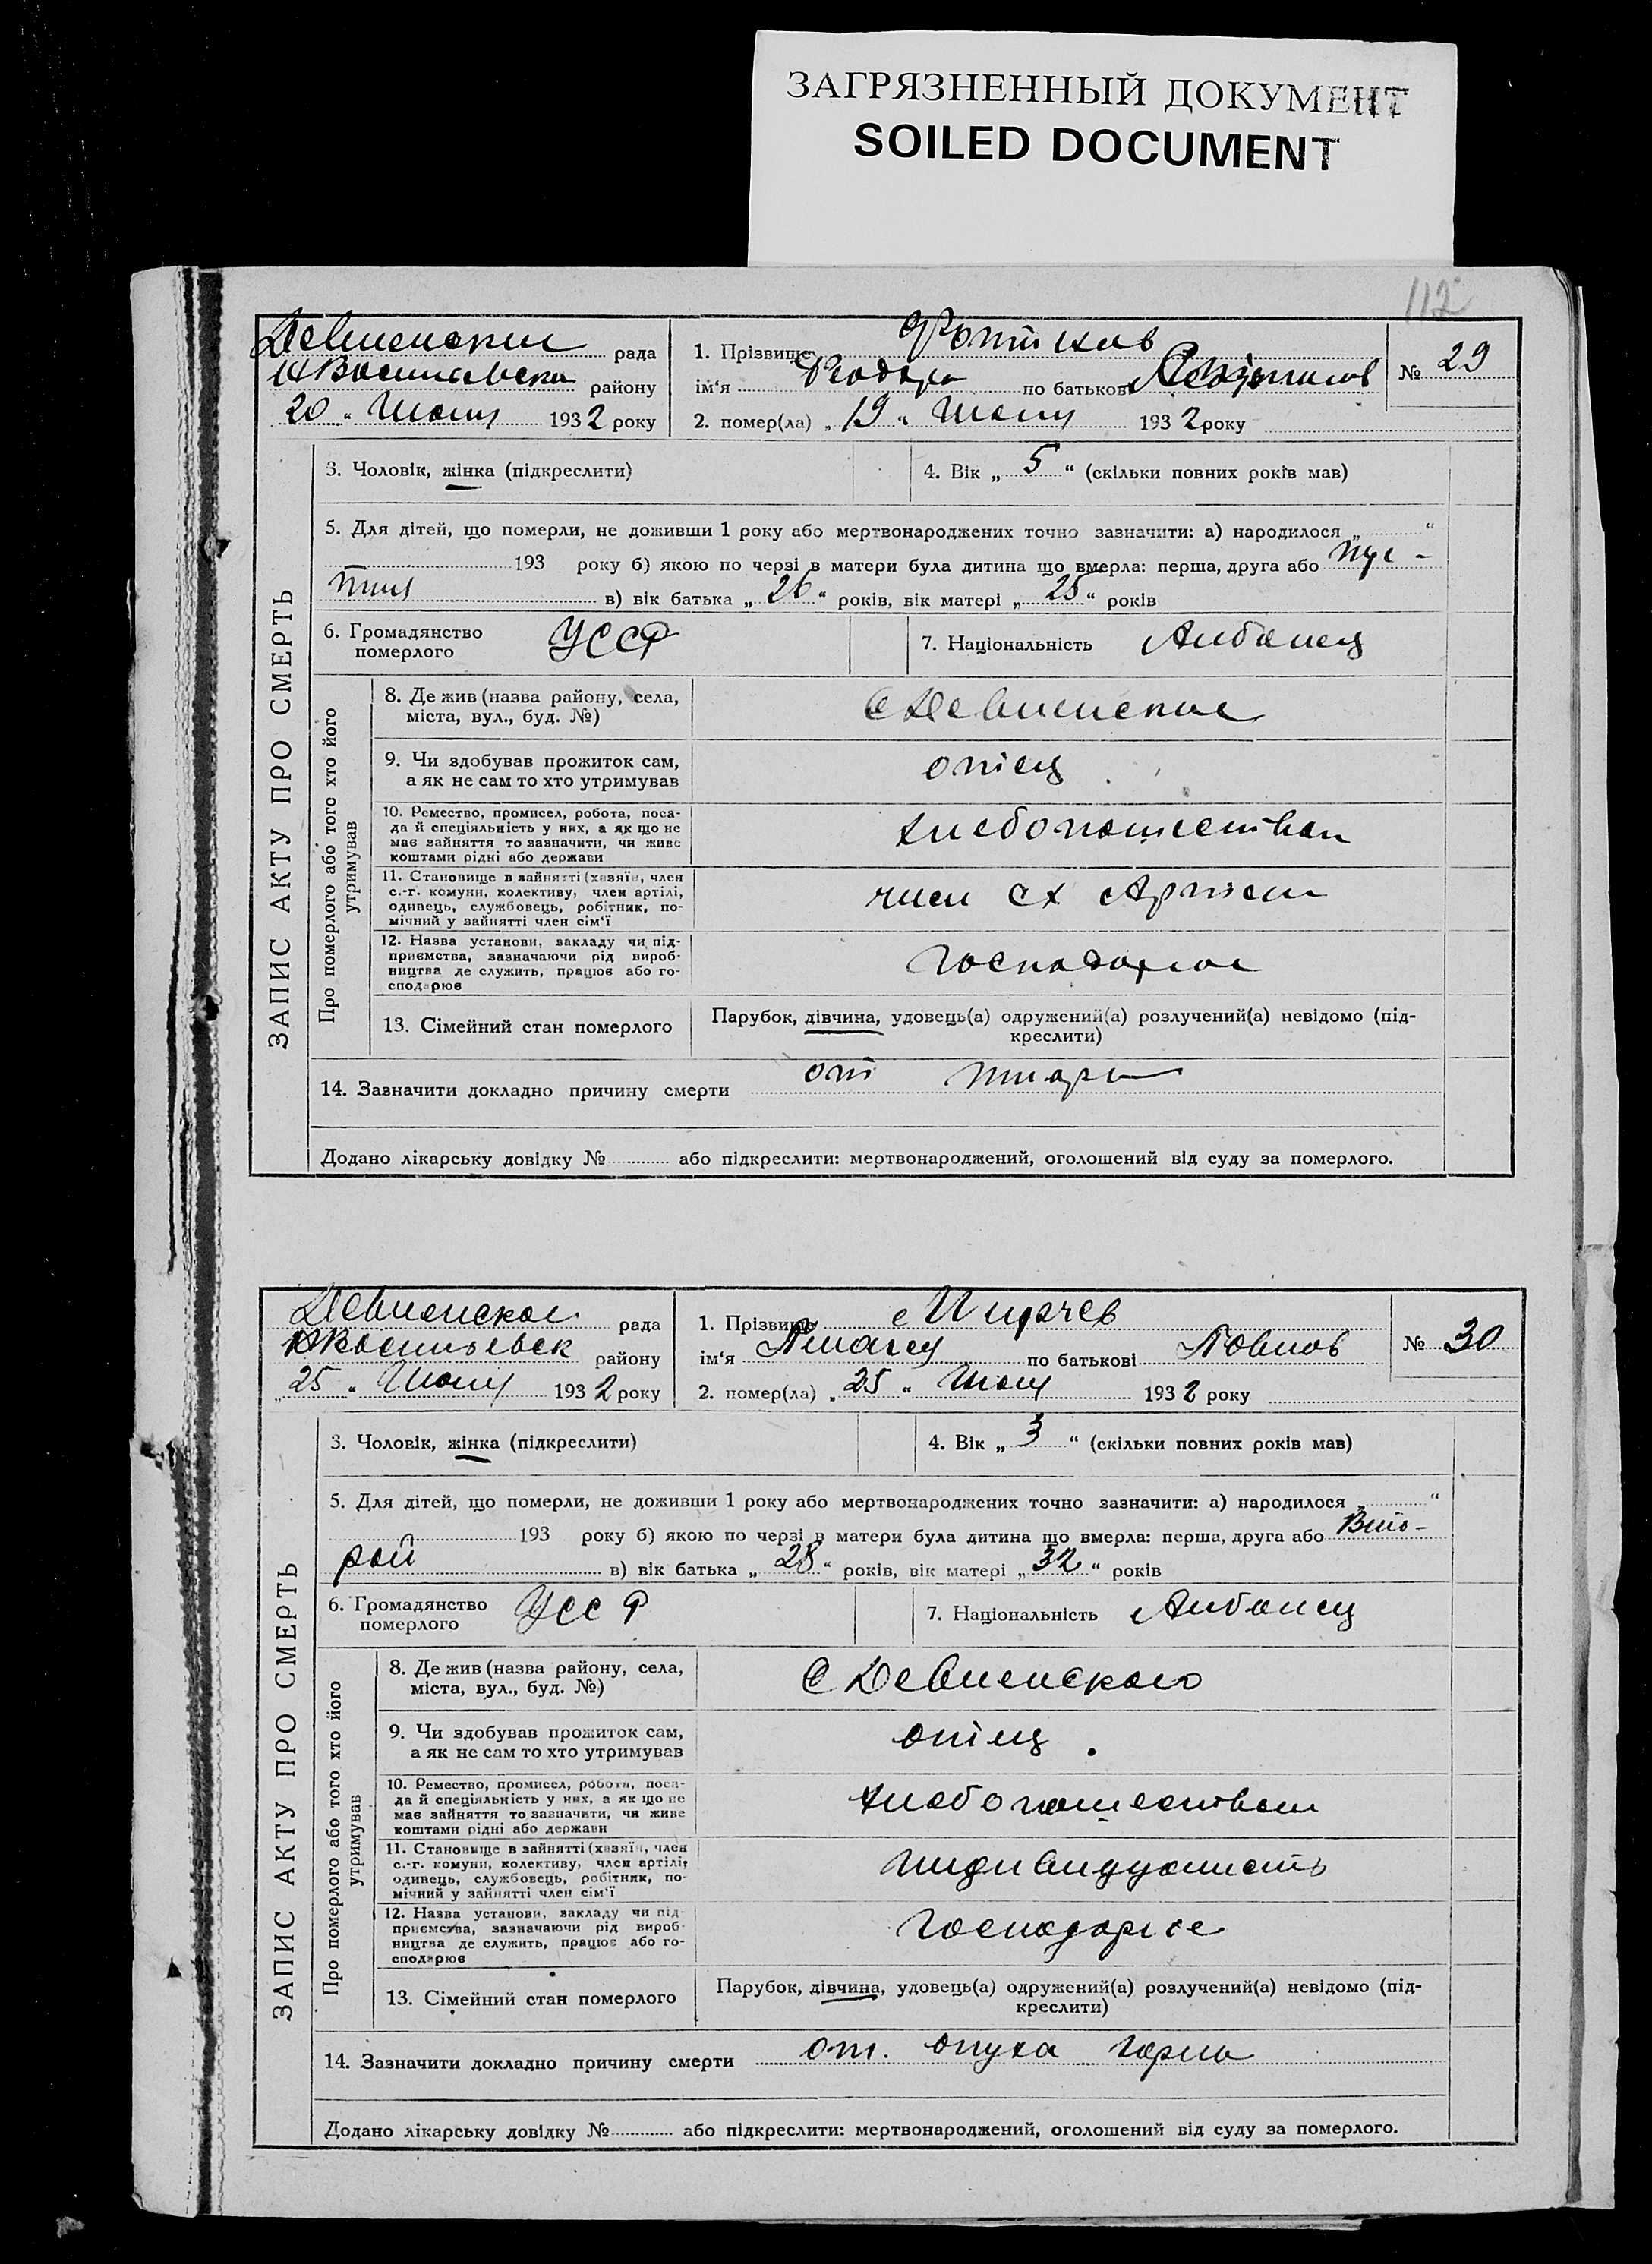 ЗАГРЯЗНЕННЫЙ ДОКУМЕНТ
SOILED DOCUMENT
112
рада
району
20 „ 1932 року
1. Прізвище
ім‘я по батькові
2. помер(ла) „ 19 “ 1932 року
№ 29
ЗАПИС АКТУ ПРО СМЕРТЬ
3. Чоловік, жінка (підкреслити)
4. Вік „ 5 “ (скільки повних років мав)
5. Для дітей, що померли, не доживши 1 року або мертвонароджених точно зазначити: а) народилося „ “
193 року б) якою по черзі в матери була дитина що вмерла: перша, друга або
в) вік батька „ 26 “ років, вік матері „ 25 “ років
6. Громадянство померлого УССР
7. Національність Албанец
Про померлого або того хто його утримував
8. Де жив (назва району, села,
міста, вул., буд. №)
9. Чи здобував прожиток сам,
а як не сам то хто утримував
отец
10. Ремество, промисел, робота, поса-
да й спеціяльність у них, а як що не
має зайняття то зазначити, чи живе
коштами рідні або держави
хлебопашеством
11. Становище в зайнятті (хазяїн, член
с.-г. комуни, колективу, член артілі,
одинець, службовець, робітник, по-
мічний у зайнятті член сім‘ї
член сх Артели
12. Назва установи, закладу чи під-
приємства, зазначаючи рід вироб-
ництва де служить, працює або го-
сподарює
13. Сімейний стан померлого
Парубок, дівчина, удовець(а) одружений(а) розлучений(а) невідомо (під-
креслити)
14. Зазначити докладно причину смерти от
Додано лікарську довідку № або підкреслити: мертвонароджений, оголошений від суду за померлого.
рада
району
„ 25 „ 1932 року
1. Прізвище
ім‘я по батькові
2. помер(ла) „ 25 “ 1932 року
№ 30
ЗАПИС АКТУ ПРО СМЕРТЬ
3. Чоловік, жінка (підкреслити)
4. Вік „ 3 “ (скільки повних років мав)
5. Для дітей, що померли, не доживши 1 року або мертвонароджених точно зазначити: а) народилося „ “
193 року б) якою по черзі в матери була дитина що вмерла: перша, друга або Вто-
рой в) вік батька „ 28 “ років, вік матері „ 32 “ років
6. Громадянство померлого УССР
7. Національність Албанец
Про померлого або того хто його утримував
8. Де жив (назва району, села,
міста, вул., буд. №)
9. Чи здобував прожиток сам,
а як не сам то хто утримував
отец.
10. Ремество, промисел, робота, поса-
да й спеціяльність у них, а як що не
має зайняття то зазначити, чи живе
коштами рідні або держави
хлебопашеством
11. Становище в зайнятті (хазяїн, член
с.-г. комуни, колективу, член артілі,
одинець, службовець, робітник, по-
мічний у зайнятті член сім‘ї
12. Назва установи, закладу чи під-
приємства, зазначаючи рід вироб-
ництва де служить, працює або го-
сподарює
13. Сімейний стан померлого
Парубок, дівчина, удовець(а) одружений(а) розлучений(а) невідомо (під-
креслити)
14. Зазначити докладно причину смерти от. опуха горла
Додано лікарську довідку № або підкреслити: мертвонароджений, оголошений від суду за померлого.